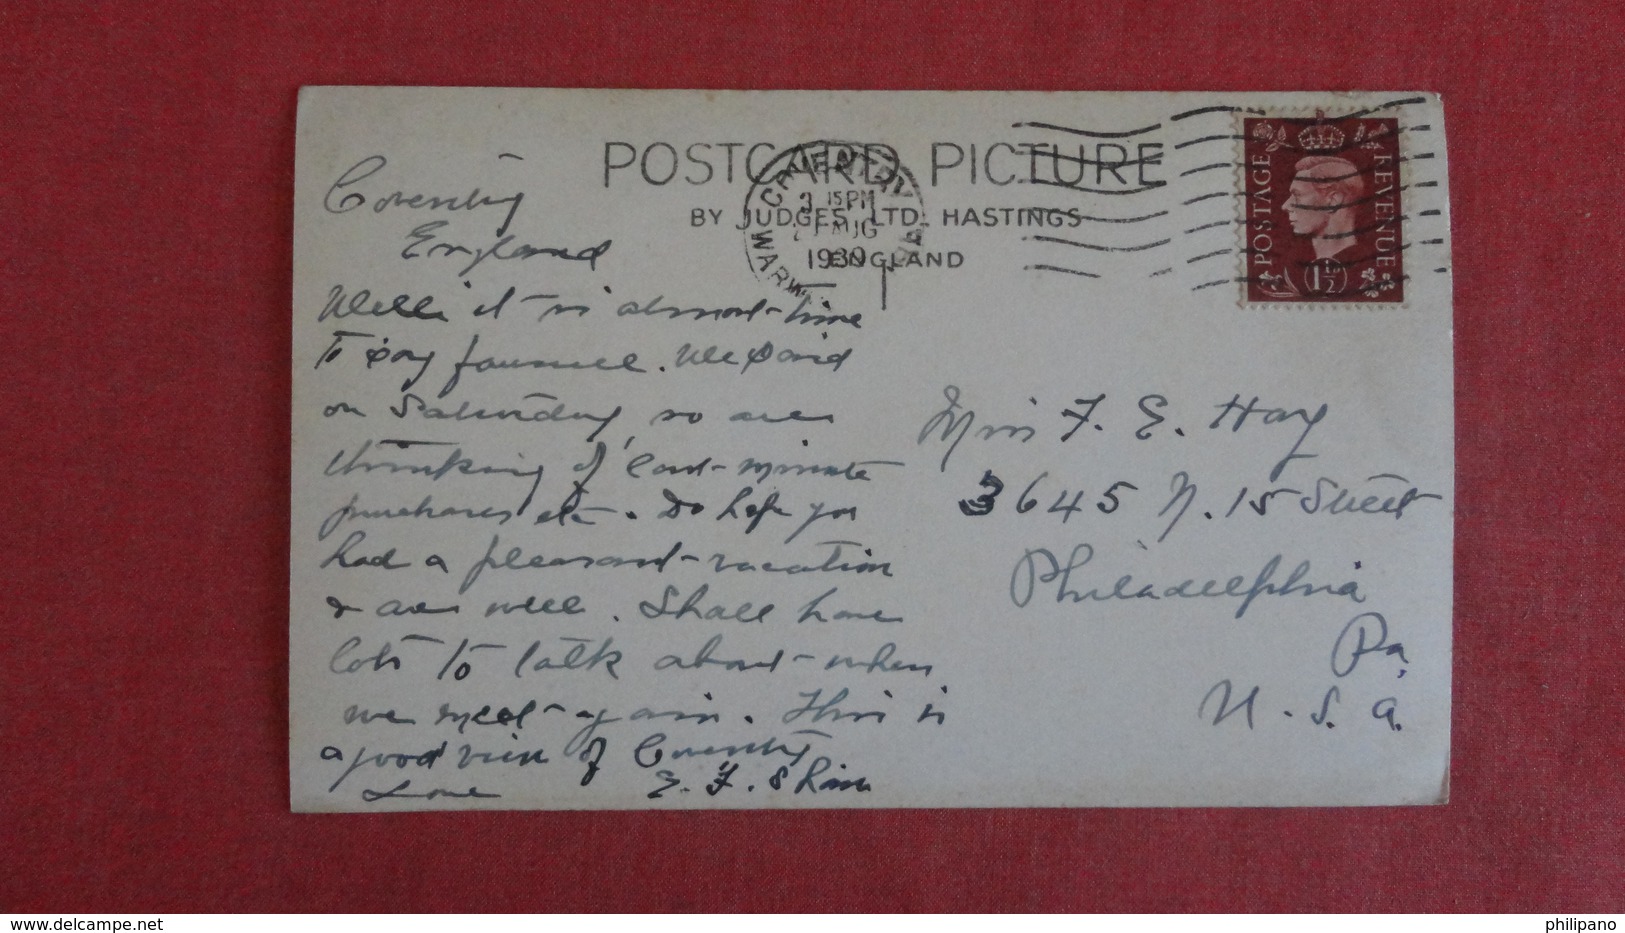 POSTCARD PICTURE
BY JUDGES LTD. HASTINGS
ENGLAND
COVENTRY
3 15 PM
AUG
1939
WARWK
POSTAGE
REVENUE
1½D
Coventry
England
Well it is almost time
to say farewell. We said
on Saturday, so are
thinking of last-minute
purchases etc. Do hope you
had a pleasant vacation
& are well. Shall have
lots to talk about when
we meet again. This is
a good view of Coventry
Love E. F.
Miss F. E. Hay
3645 N. 15 Street
Philadelphia
Pa.
U. S. A.
delcampe.net
philipano